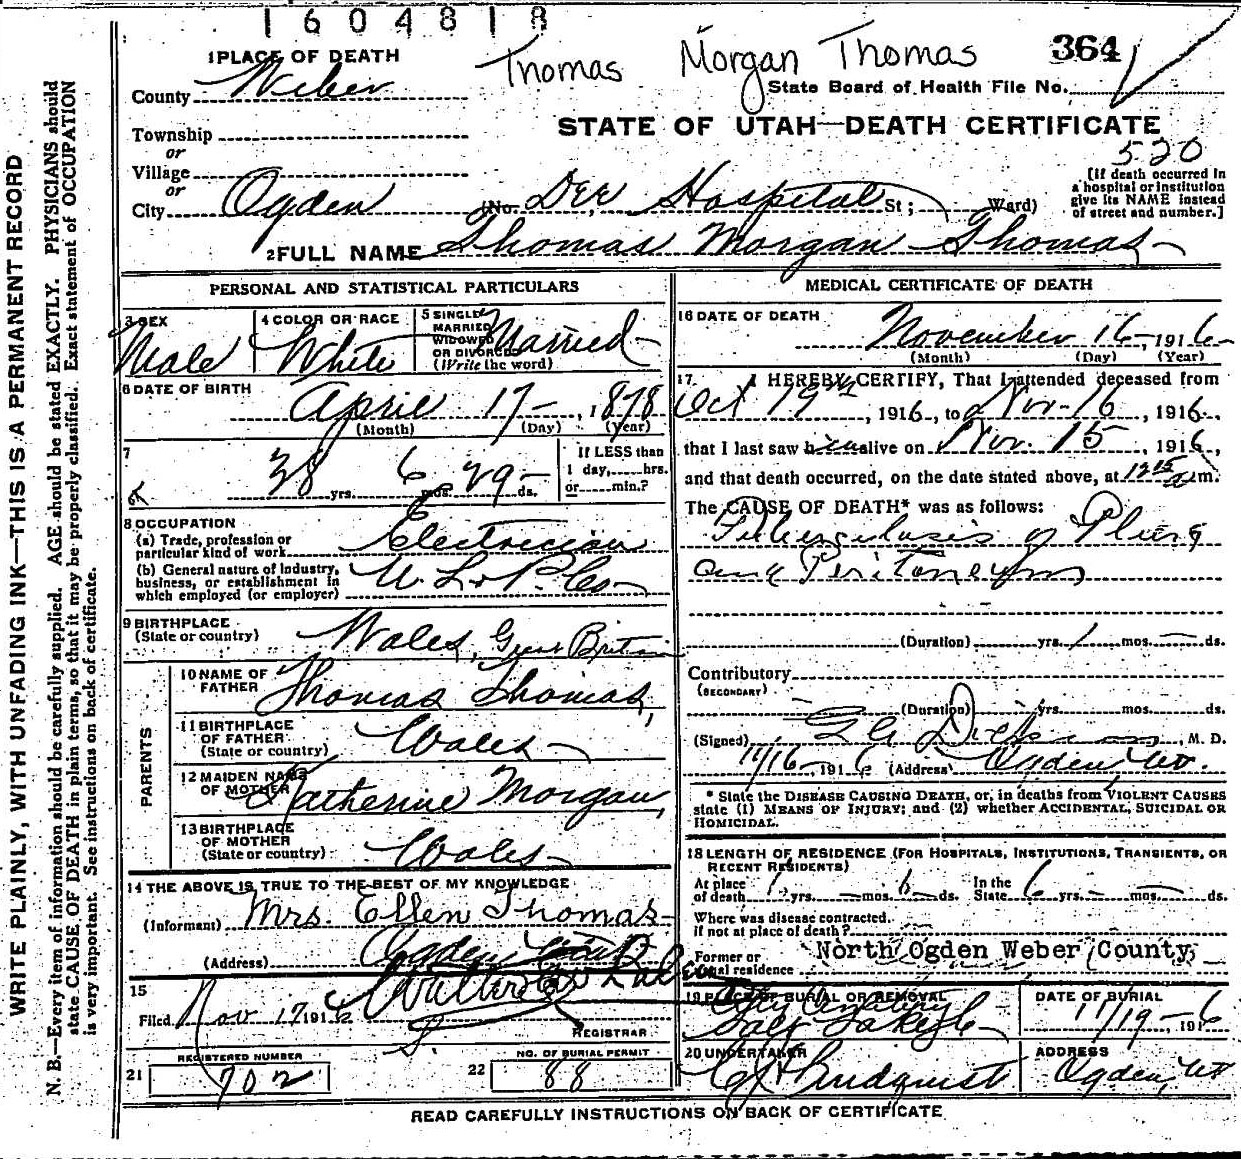 1604818
Thomas Morgan Thomas 364
State Board of Health File No.
1 PLACE OF DEATH
County Weber
STATE OF UTAH—DEATH CERTIFICATE
Township
or
Village
or
City Ogden (No. Dee Hospital St; Ward)
520
[If death occurred in
a hospital or institution
give its NAME instead
of street and number.]
2 FULL NAME Thomas Morgan Thomas
WRITE PLAINLY, WITH UNFADING INK—THIS IS A PERMANENT RECORD
N. B.—Every item of information should be carefully supplied. AGE should be stated EXACTLY. PHYSICIANS should
state CAUSE OF DEATH in plain terms, so that it may be properly classified. Exact statement of OCCUPATION
is very important. See instructions on back of certificate.
PERSONAL AND STATISTICAL PARTICULARS
3 SEX
Male
4 COLOR OR RACE
White
5 SINGLE
MARRIED
WIDOWED
OR DIVORCED
(Write the word)
Married
6 DATE OF BIRTH
April 17 , 1878
(Month) (Day) (Year)
7
38 yrs. 6 mos. 29 ds.
If LESS than
1 day, hrs.
or min.?
8 OCCUPATION
(a) Trade, profession or
particular kind of work Electrician
(b) General nature of industry,
business, or establishment in
which employed (or employer) U. L & P. Co
9 BIRTHPLACE
(State or country) Wales, Great Britain
PARENTS
10 NAME OF
FATHER Thomas Thomas,
11 BIRTHPLACE
OF FATHER
(State or country) Wales
12 MAIDEN NAME
OF MOTHER Katherine Morgan,
13 BIRTHPLACE
OF MOTHER
(State or country) Wales
14 THE ABOVE IS TRUE TO THE BEST OF MY KNOWLEDGE
(Informant) Mrs. Ellen Thomas
(Address) Ogden
15
Filed Nov 17 1916
REGISTRAR
REGISTERED NUMBER
21 702
NO. OF BURIAL PERMIT
22 88
MEDICAL CERTIFICATE OF DEATH
16 DATE OF DEATH
November 16, 1916
(Month) (Day) (Year)
17. I HEREBY CERTIFY, That I attended deceased from
Oct 19th, 1916, to Nov. 16, 1916,
that I last saw him alive on Nov. 15, 1916,
and that death occurred, on the date stated above, at 12 15 a m.
The CAUSE OF DEATH* was as follows:
Tuberculosis of Pleura
and Peritoneum
(Duration) yrs. 1 mos. ds.
Contributory
(SECONDARY)
(Duration) yrs. mos. ds.
(Signed) , M. D.
11/16, 1916 (Address) Ogden Ut.
* State the DISEASE CAUSING DEATH, or, in deaths from VIOLENT CAUSES
state (1) MEANS OF INJURY; and (2) whether ACCIDENTAL, SUICIDAL OR
HOMICIDAL.
18 LENGTH OF RESIDENCE (FOR HOSPITALS, INSTITUTIONS, TRANSIENTS, OR
RECENT RESIDENTS)
At place
of death yrs. mos. ds. In the
State 6 yrs. mos. ds.
Where was disease contracted
if not at place of death?
Former or
usual residence North Ogden Weber County,
19 PLACE OF BURIAL OR REMOVAL
City Cemetery
Salt Lake
DATE OF BURIAL
11/19 1916
20 UNDERTAKER
Lindquist
ADDRESS
Ogden, Ut
READ CAREFULLY INSTRUCTIONS ON BACK OF CERTIFICATE